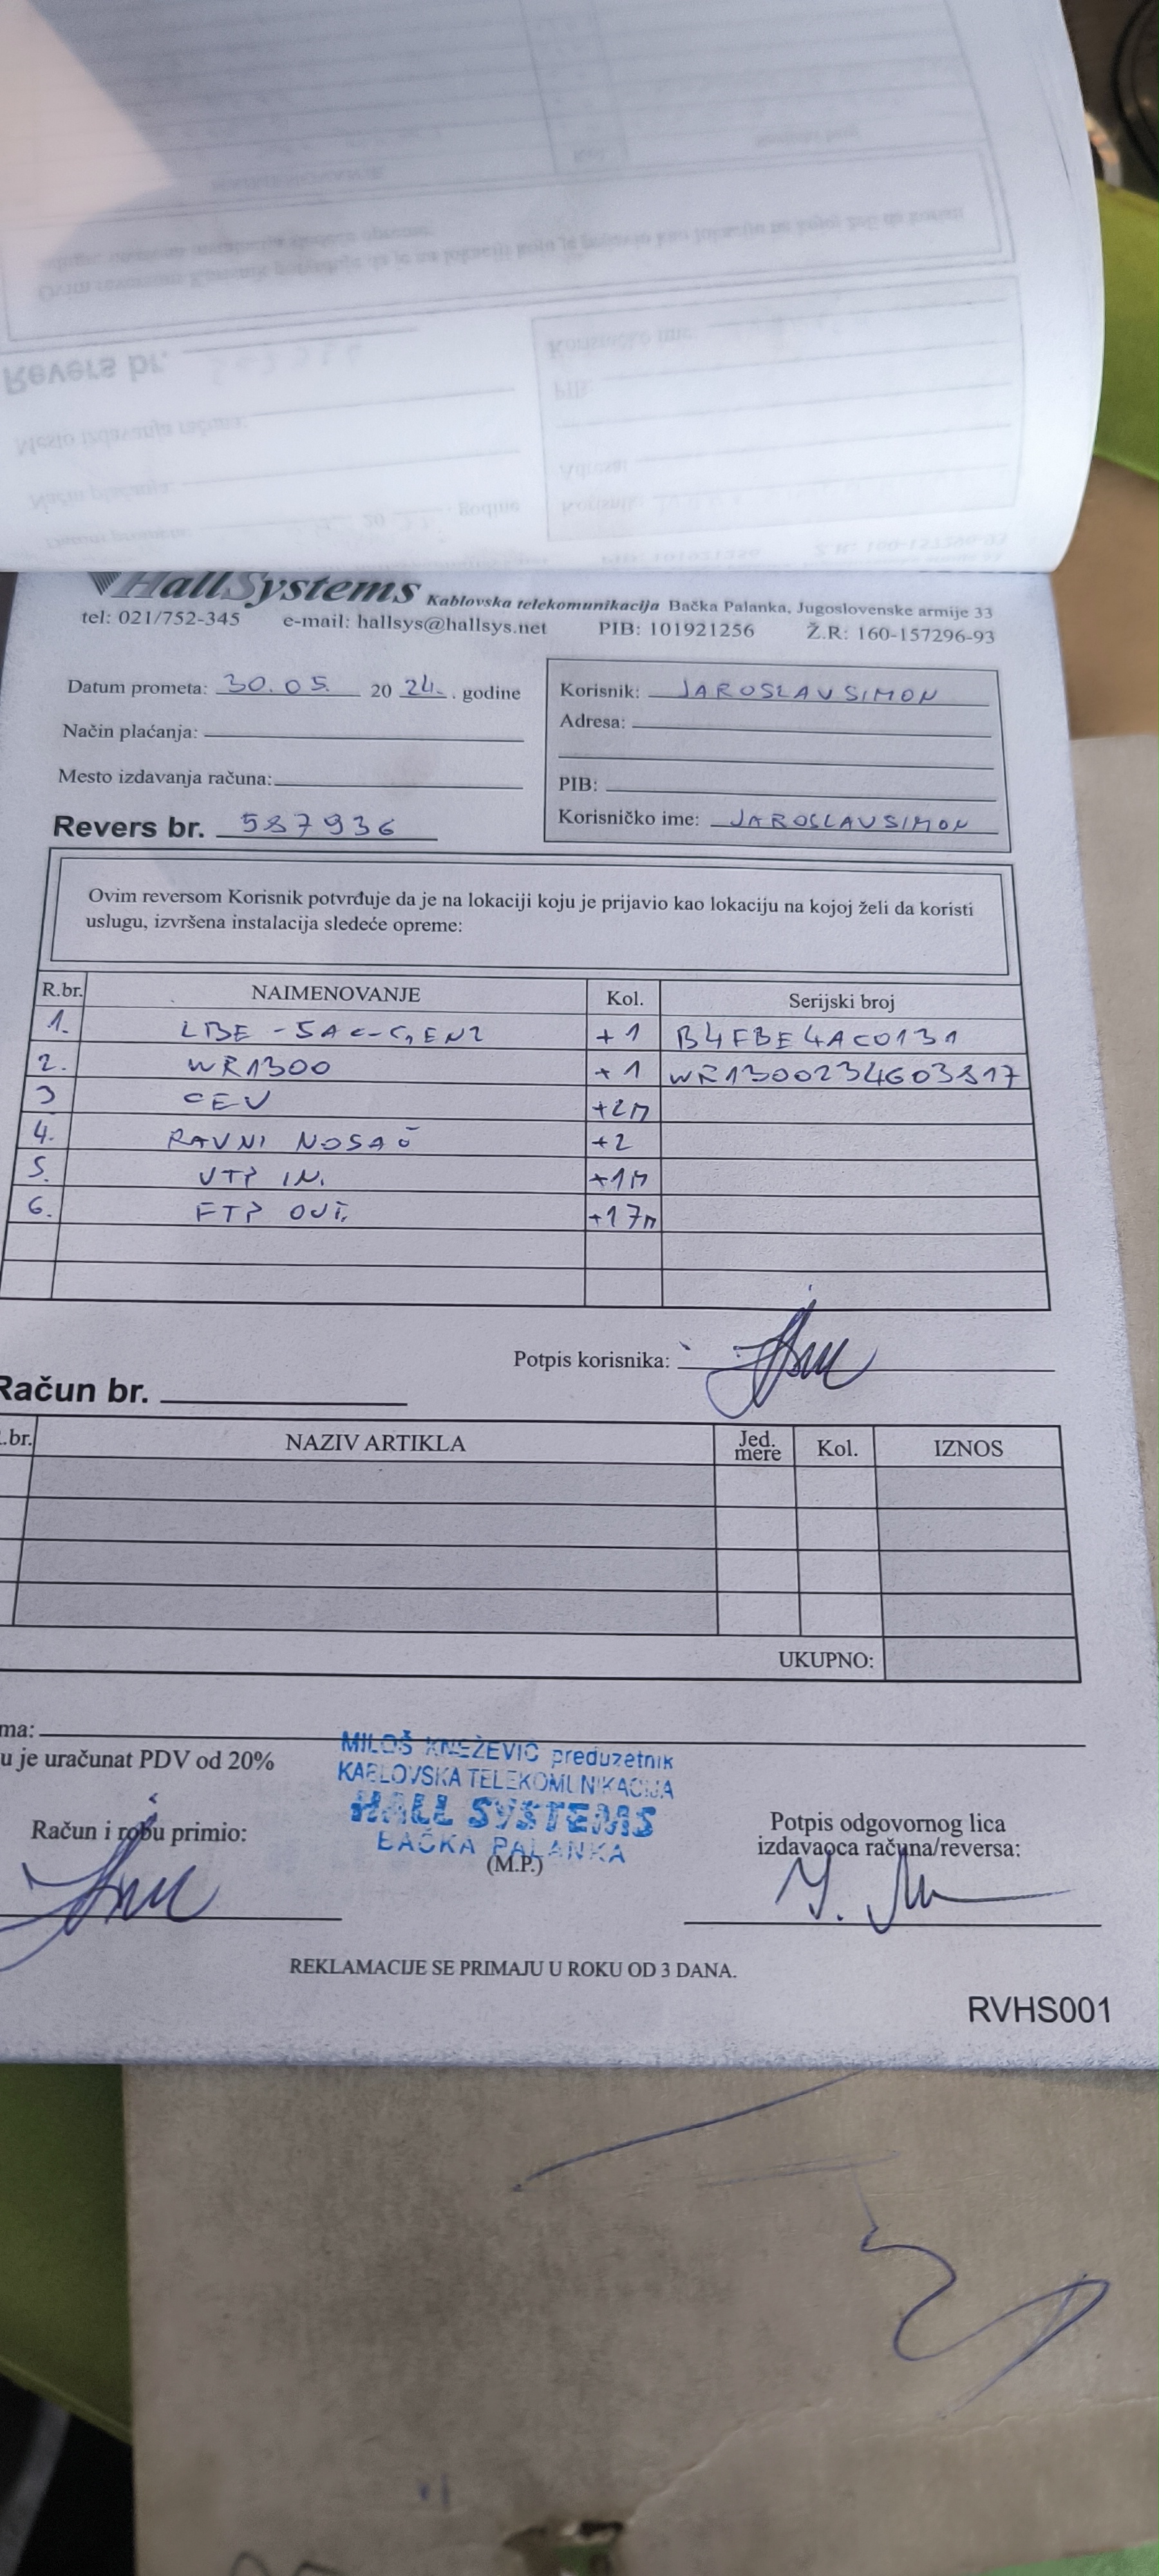 HallSystems Kablovska telekomunikacija Bačka Palanka, Jugoslovenske armije 33
tel: 021/752-345 e-mail: hallsys@hallsys.net PIB: 101921256 Ž.R: 160-157296-93
Datum prometa: 30.05. 20 24. . godine
Način plaćanja:
Mesto izdavanja računa:
Revers br. 587936
Korisnik: JAROSLAVSIMON
Adresa:
PIB:
Korisničko ime: JAROSLAVSIMON
Ovim reversom Korisnik potvrđuje da je na lokaciji koju je prijavio kao lokaciju na kojoj želi da koristi
uslugu, izvršena instalacija sledeće opreme:
R.br. NAIMENOVANJE Kol. Serijski broj
1. LBE-5AC-GEN2 +1 B4FBE4AC0131
2. WR1300 +1 WR1300234603817
3 CEV +2m
4. RAVNI NOSAČ +2
5. UTP IN. +1m
6. FTP OUT. +17m
Potpis korisnika:
Račun br.
.br. NAZIV ARTIKLA Jed. mere Kol. IZNOS
UKUPNO:
ma:
u je uračunat PDV od 20%
MILOŠ KNEŽEVIĆ preduzetnik
KABLOVSKA TELEKOMUNIKACIJA
HALL SYSTEMS
BAČKA PALANKA
(M.P.)
Račun i robu primio:
Potpis odgovornog lica
izdavaoca računa/reversa:
REKLAMACIJE SE PRIMAJU U ROKU OD 3 DANA.
RVHS001